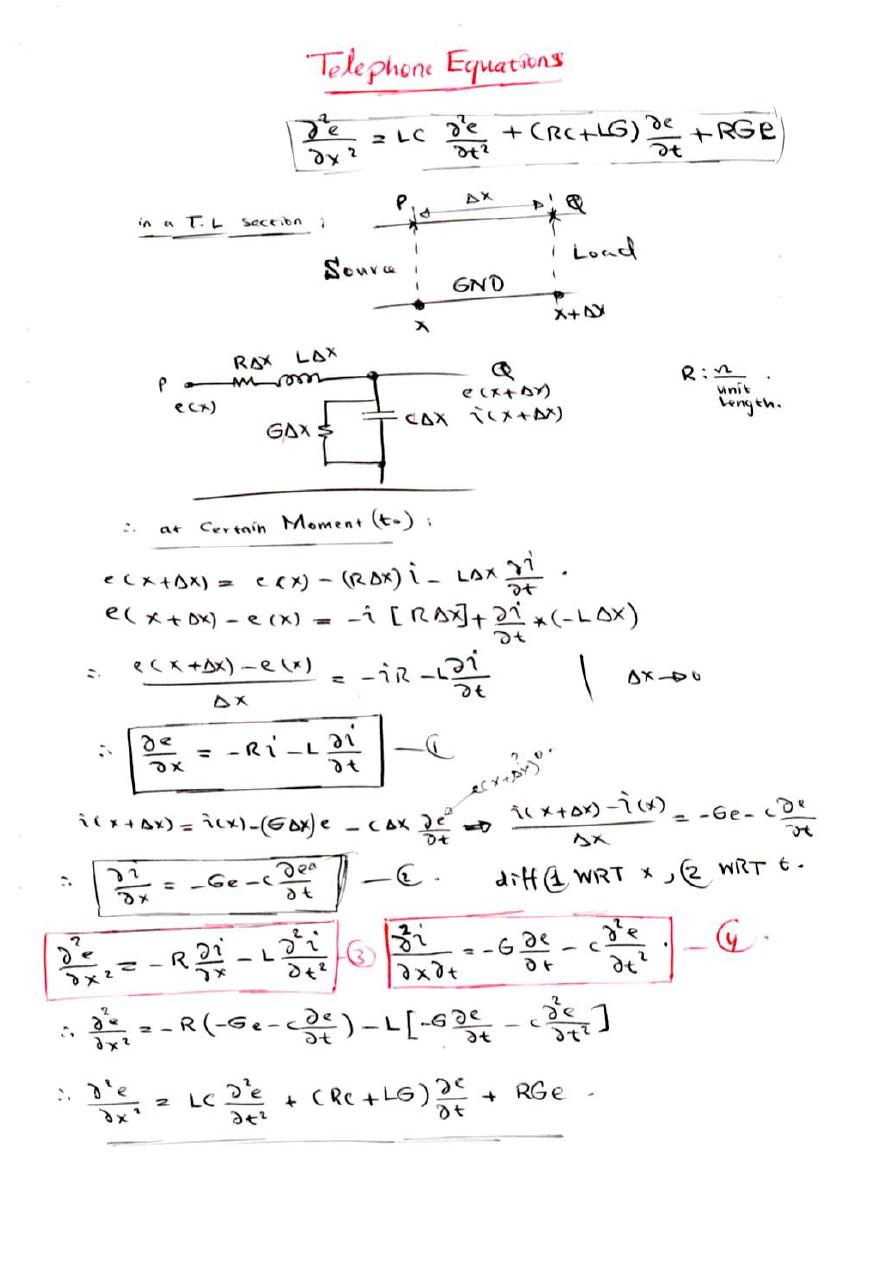 Telephone Equations
∂²e/∂x² = LC ∂²e/∂t² + (RC+LG) ∂e/∂t + RGe
in a T.L section ;
P Δx Q
Source Load
GND
x x+Δx
RΔx LΔx
P Q
e(x) e(x+Δx)
GΔx CΔx i(x+Δx)
R : Ω/unit length.
∴ at Certain Moment (t₀) :
e(x+Δx) = e(x) - (RΔx)i - LΔx ∂i/∂t .
e(x+Δx) - e(x) = -i [RΔx] + ∂i/∂t *(-LΔx)
∴ e(x+Δx)-e(x)/Δx = -iR - L∂i/∂t | Δx→0
∴ ∂e/∂x = -Ri - L ∂i/∂t —①
e(x+Δx)
i(x+Δx) = i(x)-(GΔx)e - CΔx ∂e/∂t ⇒ i(x+Δx)-i(x)/Δx = -Ge - C∂e/∂t
∴ ∂i/∂x = -Ge - C∂e/∂t —②. diff ① WRT x , ② WRT t.
∂²e/∂x² = -R ∂i/∂x - L ∂²i/∂t² ③ ∂²i/∂x∂t = -G ∂e/∂t - C ∂²e/∂t² . —④.
∴ ∂²e/∂x² = -R(-Ge - C∂e/∂t) - L[-G∂e/∂t - C∂²e/∂t²]
∴ ∂²e/∂x² = LC ∂²e/∂t² + (RC+LG) ∂e/∂t + RGe .